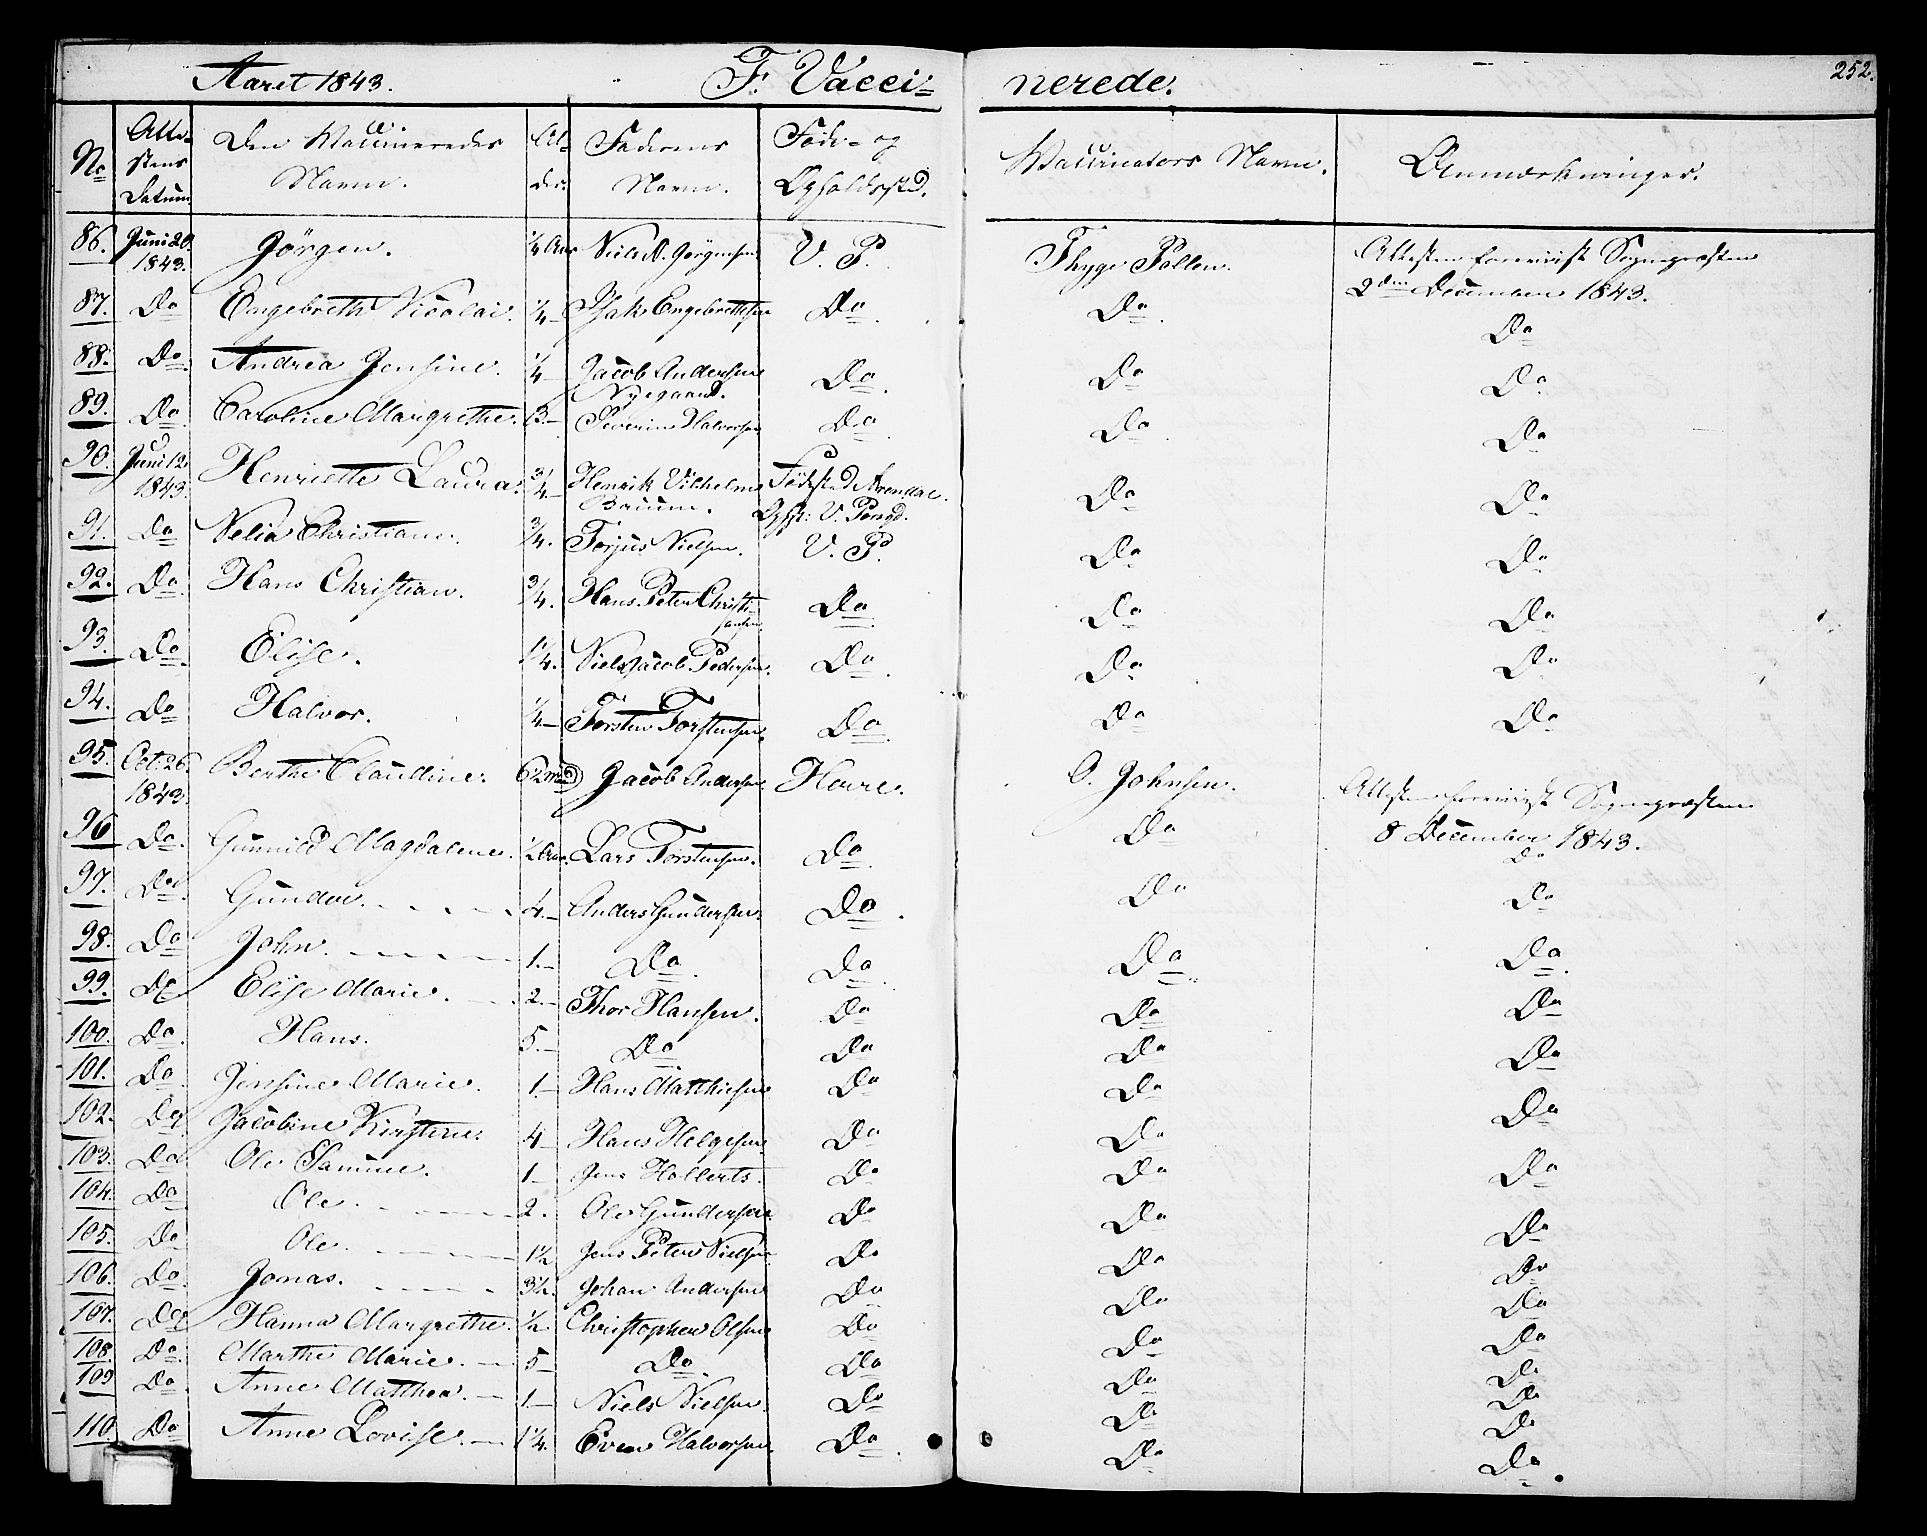 Aaret 1843. F. Vacci= nerede. 252.
No Atte-stens Datum Den Vaccineredes Navn. Al-der. Faderens Navn. Føde- og Opholdssted. Vaccinators Navn. Anmærkninger.
86. Juni 20. 1843. Jörgen. 1/4 Aar Niels O. Jörgensen V. P. Thyge Pollen. Attesten foreviist Sognepræsten 2den December 1843.
87. Do Engebreth Nicolai. 1/4 – Isak Engebrethsen Do Do Do
88. Do Andrea Jensine. 1/4 – Jacob Andersen Nyegaard. Do Do Do
89. Do Caroline Margrethe. 13 – Severin Halvorsen Do Do Do
90. Juni 12 1843 Henriette Laura. 3/4 – Henrik Vilhelm Bruun. Födested Arendal. Ophst: V. Porsgd. Do Do
91. Do Nelia Christiane. 3/4. Torjus Nielsen. V. P. Do Do
92. Do Hans Christian. 3/4. Hans Peter Christi-ansen Do Do Do
93. Do Elise. 1 1/4. Niels Jacob Pedersen. Do Do Do
94. Do Halvor. 1/4 – Torsten Torstensen. Do Do Do
95. Oct. 26. 1843 Berthe Claudine. Jacob Andersen Hovre. O. Johnsen. Attesten foreviist Sognepræsten 8 December 1843.
96 Do. Gunnild Magdalene. 1/2 Aar. Lars Torstensen. Do Do Do
97. Do. Gundor. 4. – Anders Gundersen. Do Do Do
98. Do John. 1. – Do Do Do Do
99. Do Elise Marie. 2. – Thor Hansen. Do Do Do
100. Do. Hans. 5. – Do Do Do Do
101. Do Jensine Marie. 1 – Hans Matthiesen Do Do Do
102. Do Jacobine Kirstine. 4 – Hans Helgesen Do Do Do
103. Do Ole Samine. 1 – Jens Hollerts. Do Do Do
104. Do Ole. 2. Ole Gundersen. Do Do Do
105. Do Ole. 1 1/2 Jens Peter Nielsen Do Do Do
106. Do. Jonas. 3 1/2. Johan Andersen Do Do Do
107. Do Hanna Margrethe. 1/2. Christopher Olsen Do Do Do
108. Do. Marthe Marie. 5 – Do. Do Do Do
109 Do. Anne Matthea. 1 – Niels Nielsen Do Do Do
110. Do Anne Lovise. 1 1/4. Even Halvorsen. Do Do Do